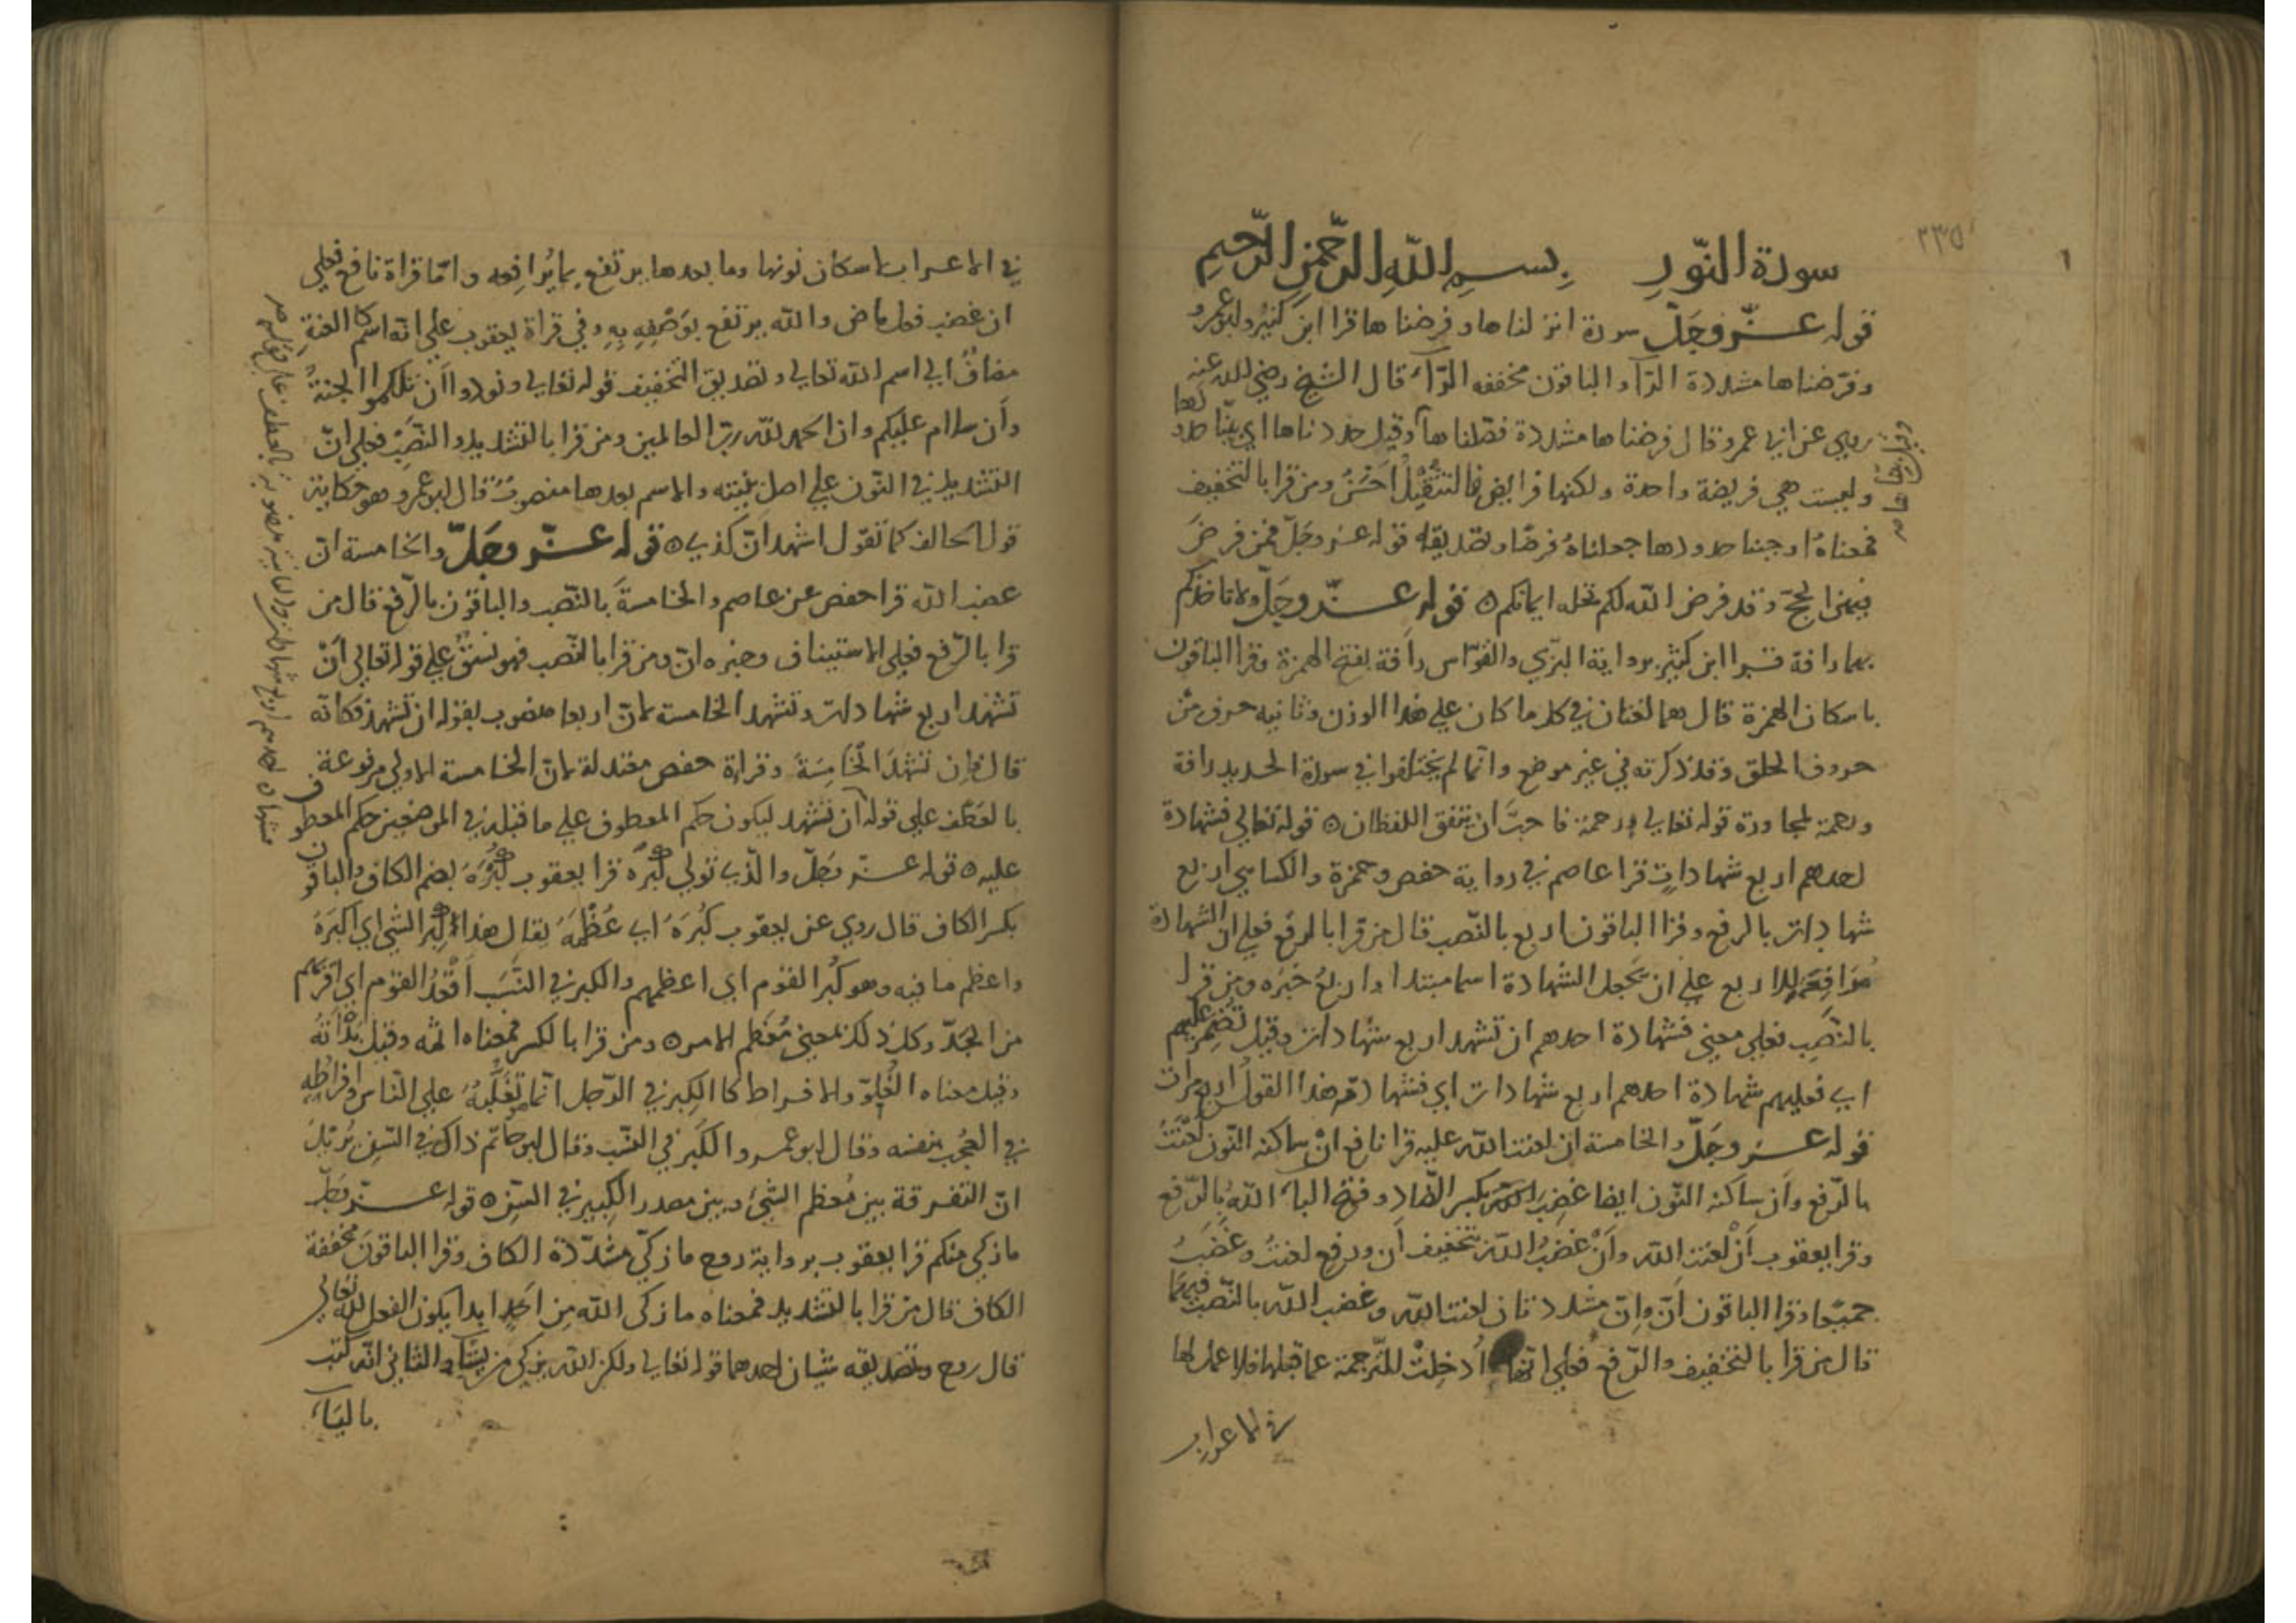 ٢٣٥
سورة النّورِ بِسمِ اللّهِ الرّحمنِ الرّحيمِ
قوله عزّ وجَلّ سورة انزلناها وفرضناها قرا ابن كثير وابو عمرو
وفرّضناها مشددة الرّآ والباقون مخففه الرّآء قال الشيخ رضي الله عنه
روي عن ابي عمرو قال فرضناها مشددة فصّلناها وقيل حددناها اي بيّنا حدودها
وليست هي فريضة واحدة ولكنها فرايض فالتثقِيْلُ احْسَنُ ومن قرا بالتخفيف
فمعناهُ اوجبنا حدودها جعلناهُ فرضًا وتصديقه قوله عز وجَلّ فمن فرضَ
فيهنّ الحجّ وقد فرض الله لكم تحله ايمانكم ٥ قوله عزّ وجَلّ ولا تاخذكم
بهما رافة قرا ابن كثير برواية البزّي والقوّاس رافة بفتح الهمزة وقرا الباقون
باسكان الهمزة قال هما لغتان في كل ما كان علي هذا الوزن وثانيه حرف من
حروف الحلق وقد ذكرته في غير موضع وانما لم يختلفوا في سورة الحديد رافة
ورحمة لمجاورة قوله تعالي ورحمة فاحبَّ ان يتفق اللفظان ٥ قوله تعالي فشهادة
احدهم اربع شهاداتٍ قرا عاصم في رواية حفص وحمزة والكسايي اربع
شهادات بالرفع وقرا الباقون اربع بالنّصب قال من قرا بالرفع فعلي ان الشهادة
مُرَافِعَة للاربع علي ان تجعل الشهادة اسما مبتدا واربعُ خبَره ومن قرا
بالنّصبِ فعلي معني فشهادة احدهم ان تشهد اربع شهادات وقيل تُضمِر عليهم
اي فعليهم شهادة احدهم اربع شهادات اي فشهادة هذا القولُ اربع مرات
قوله عز وجَلّ والخامسة ان لعنت الله عليه قرا نافع انْ ساكنه النّون لعْنَتُ
بالرّفع وأن ساكنه النّون ايضا غضِبَ الله بكسر الضّادِ وفتح الباءِ اللهُ بالرّفعِ
وقرا يعقوب أنْ لعنت اللهِ وأنْ غضَبُ اللهِ بتخفيف أن ورفع لعنتُ وغضَبُ
جميعًا وقرا الباقون انّ وانّ مشددتان لعنت الله وغضب الله بالنّصب فيهما
قال من قرا بالتخفيف والرّفع فعلي انّها أُدخِلتْ للتّرجمة عما قبلها فلا عمل لها
في الاعراب
في الاعراب باسكان نونها وما بعدها يرتفع بِما يُرافِعه وامّا قراة نافع فعلي
ان غضب فعل ماض والله يرتفع بوَصْفِهِ بِهِ وفي قراة يعقوب علي انّه اسم كاللعنةِ
مضافٌ الي اسم الله تعالي وتصديق التخفيف قوله تعالي ونودوا أن تلكمُوا الجنةُ
وأن سلام عليكم وان الحمد لله ربّ العالمين ومن قرا بالتشديد والنّصَبِ فعلي انّ
التشديد في النّون علي اصل بنيته والاسم بعدها منصوبٌ قال ابو عمرو وهو حكاية
قول الحالف كما تقول اشهد انّ كذبِ ٥ قوله عزّ وجَلّ والخامسة ان
غضب الله قرا حفص عن عاصم والخامسةَ بالنّصب والباقون بالرّفع قال من
قرا بالرّفع فعلي الاستيناف وخبره انّ ومن قرا بالنّصب فهو نسَقٌ علي قوله تعالي أنْ
تشهد اربع شهادات وتشهد الخامسة لانّ اربعا منصوب بقوله ان تشهد فكانّه
قال وان تشهَدَ الخَامِسَةَ وقراة حفص معتدلة لانّ الخامسة الاولي مرفوعة
بالعَطْف علي قوله أن تشهد ليكون حكم المعطوف علي ما قبله في الموضعين حكم المعطوف
عليه ٥ قوله عزّ وجَلّ والّذي تولي كِبْره قرا يعقوب كُبْرَهَ بضم الكاف والباقون
بكسر الكاف قال روي عن يعقوب كُبْرَهُ اي عُظْمَهُ يقال هذا كبر الشي اي اكبَرهُ
واعظم ما فيه وهو كُبْر القوم اي اعظمهم والكبر في النّسَبِ أقْعدُ القوم اي اقربهم
من الجَدّ وكل ذلك لمعني مُعْظم الامر ٥ ومن قرا بالكسر فمعناه اثمه وقيل بَدْاتهُ
وقيل معناه الْغُلِوّ والافراط كالكِبر في الرّجل انّما تغليهُ علي النّاس وافراطُهِ
في العُجْب بنفسه وقال ابو عمرو الكُبر في النّسَب وقال ابو حاتم ذاك في السّن يُريْدُ
انّ التفرقة بين مُعظم الشّيءِ وبين مصدر الكبِير في السّنِ ٥ قوله عزّ وجَلّ
ما زكي منكم قرا يعقوب برواية روح ما زكّي مشدّدة الكاف وقرا الباقون مخففة
الكاف قال من قرا بالتشديد فمعناه ما زكي الله مِن احَدٍ ابدا يكون الفعل لله تعالي
قال روح وتصديقه شيان احدهما قوله تعالي ولكن الله يزكي من يشآء والثاني انّه كتب
بالياء